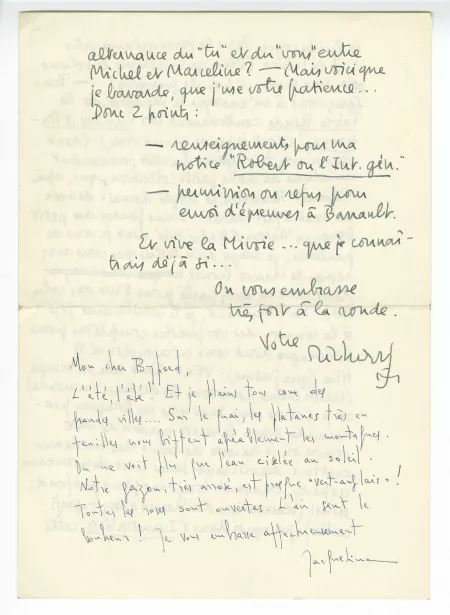 alternance du "tu" et du "vous" entre
Michel et Marceline? — Mais voici que
je bavarde, que j'use votre patience...
Donc 2 points:
— renseignements pour ma
notice "Robert ou l'Int. gén."
— permission ou refus pour
envoi d'épreuves à Barrault.
Et vive la Mivoie... que je connaî-
trais déjà si...
On vous embrasse
très fort à la ronde.
Votre
Mon cher
L'été, l'été! Et je plains tous ceux des
grandes villes.... Sur le quai, les platanes très en
feuilles nous biffent agréablement les montagnes.
On ne voit plus que l'eau ciselée au soleil.
Notre gazon, très arrosé, est presque "vert-anglais"!
Toutes les roses sont ouvertes. L'air sent le
bonheur! Je vous embrasse affectueusement
Jacqueline